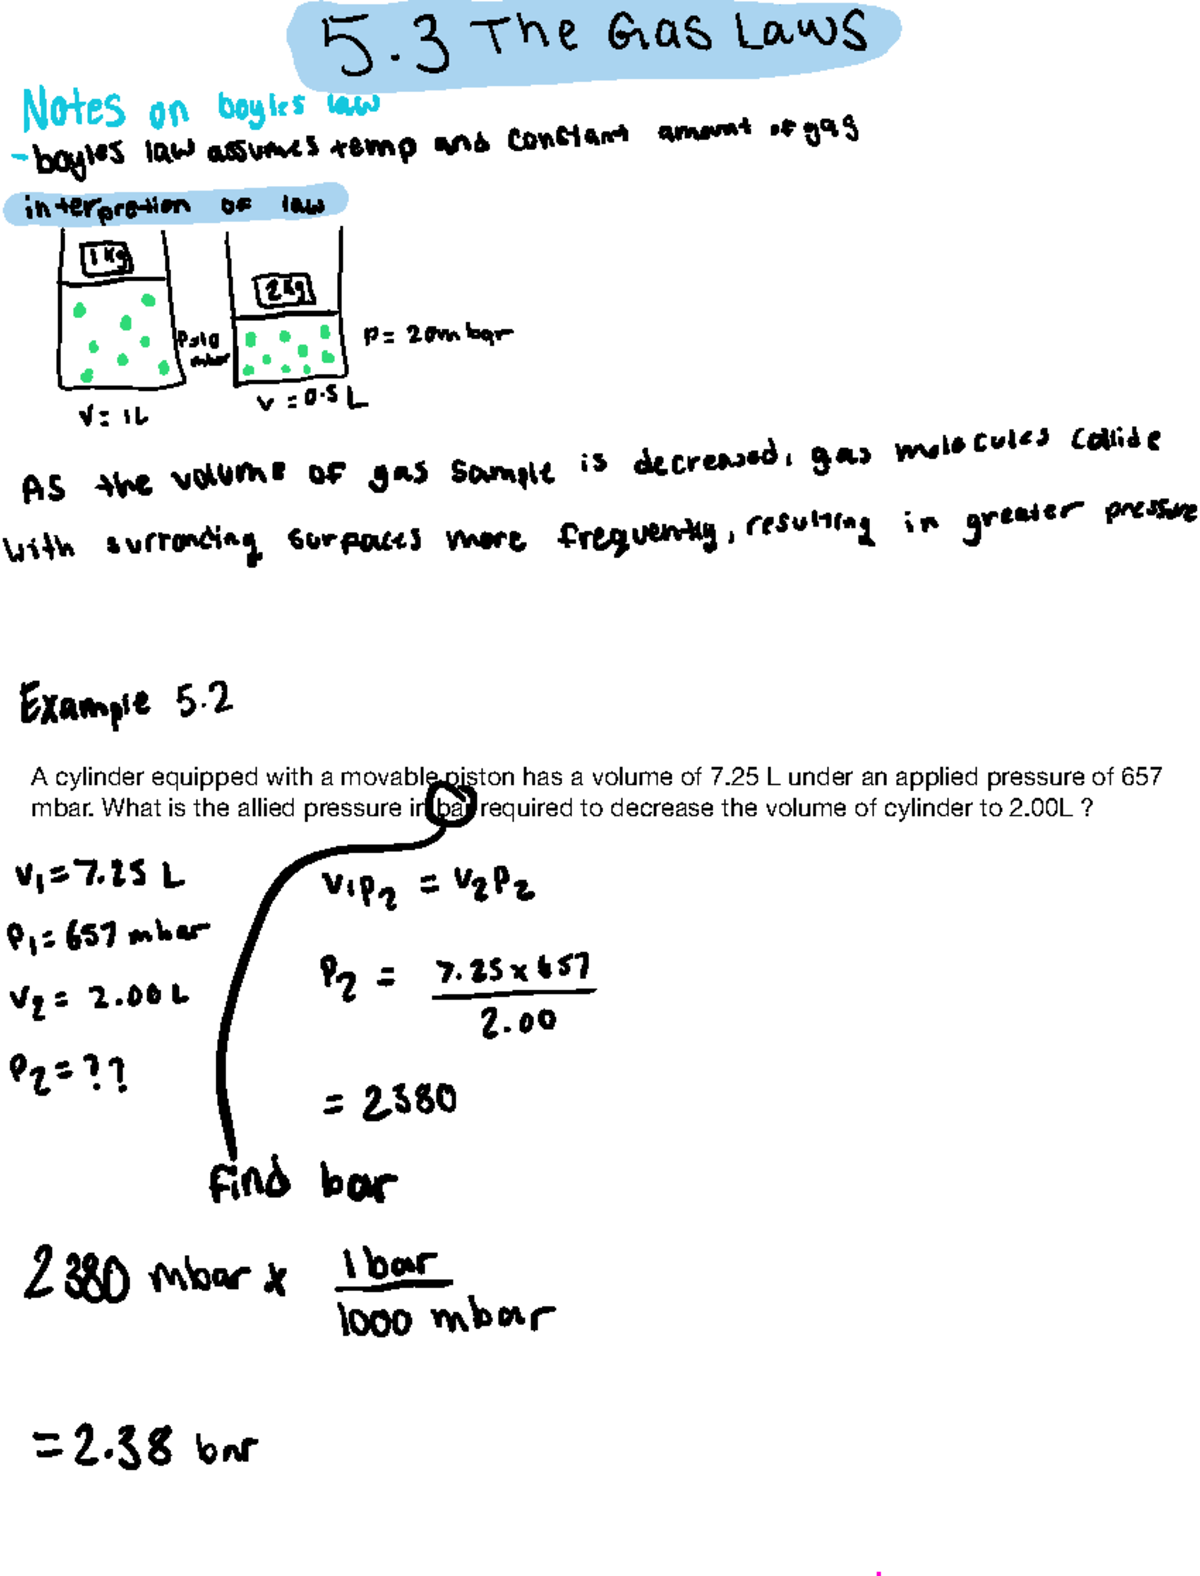 5.3 The Gas Laws
Notes on boyles law
- boyles law assumes temp and constant amount of gas
interpretion of law
1 kg
2 kg
P=10
mbar
P= 20m bar
V= 1L
V = 0.5 L
As the volume of gas sample is decreased, gas molecules collide
with surronding surfaces more frequently, resulting in greater pressure
Example 5.2
A cylinder equipped with a movable piston has a volume of 7.25 L under an applied pressure of 657
mbar. What is the allied pressure in bar required to decrease the volume of cylinder to 2.00L ?
V₁=7.25 L
P₁= 657 mbar
V₂= 2.00 L
P₂=??
V₁P₂ = V₂P₂
P₂ = 7.25 x 657
2.00
= 2380
find bar
2380 mbar x 1 bar
1000 mbar
= 2.38 bar